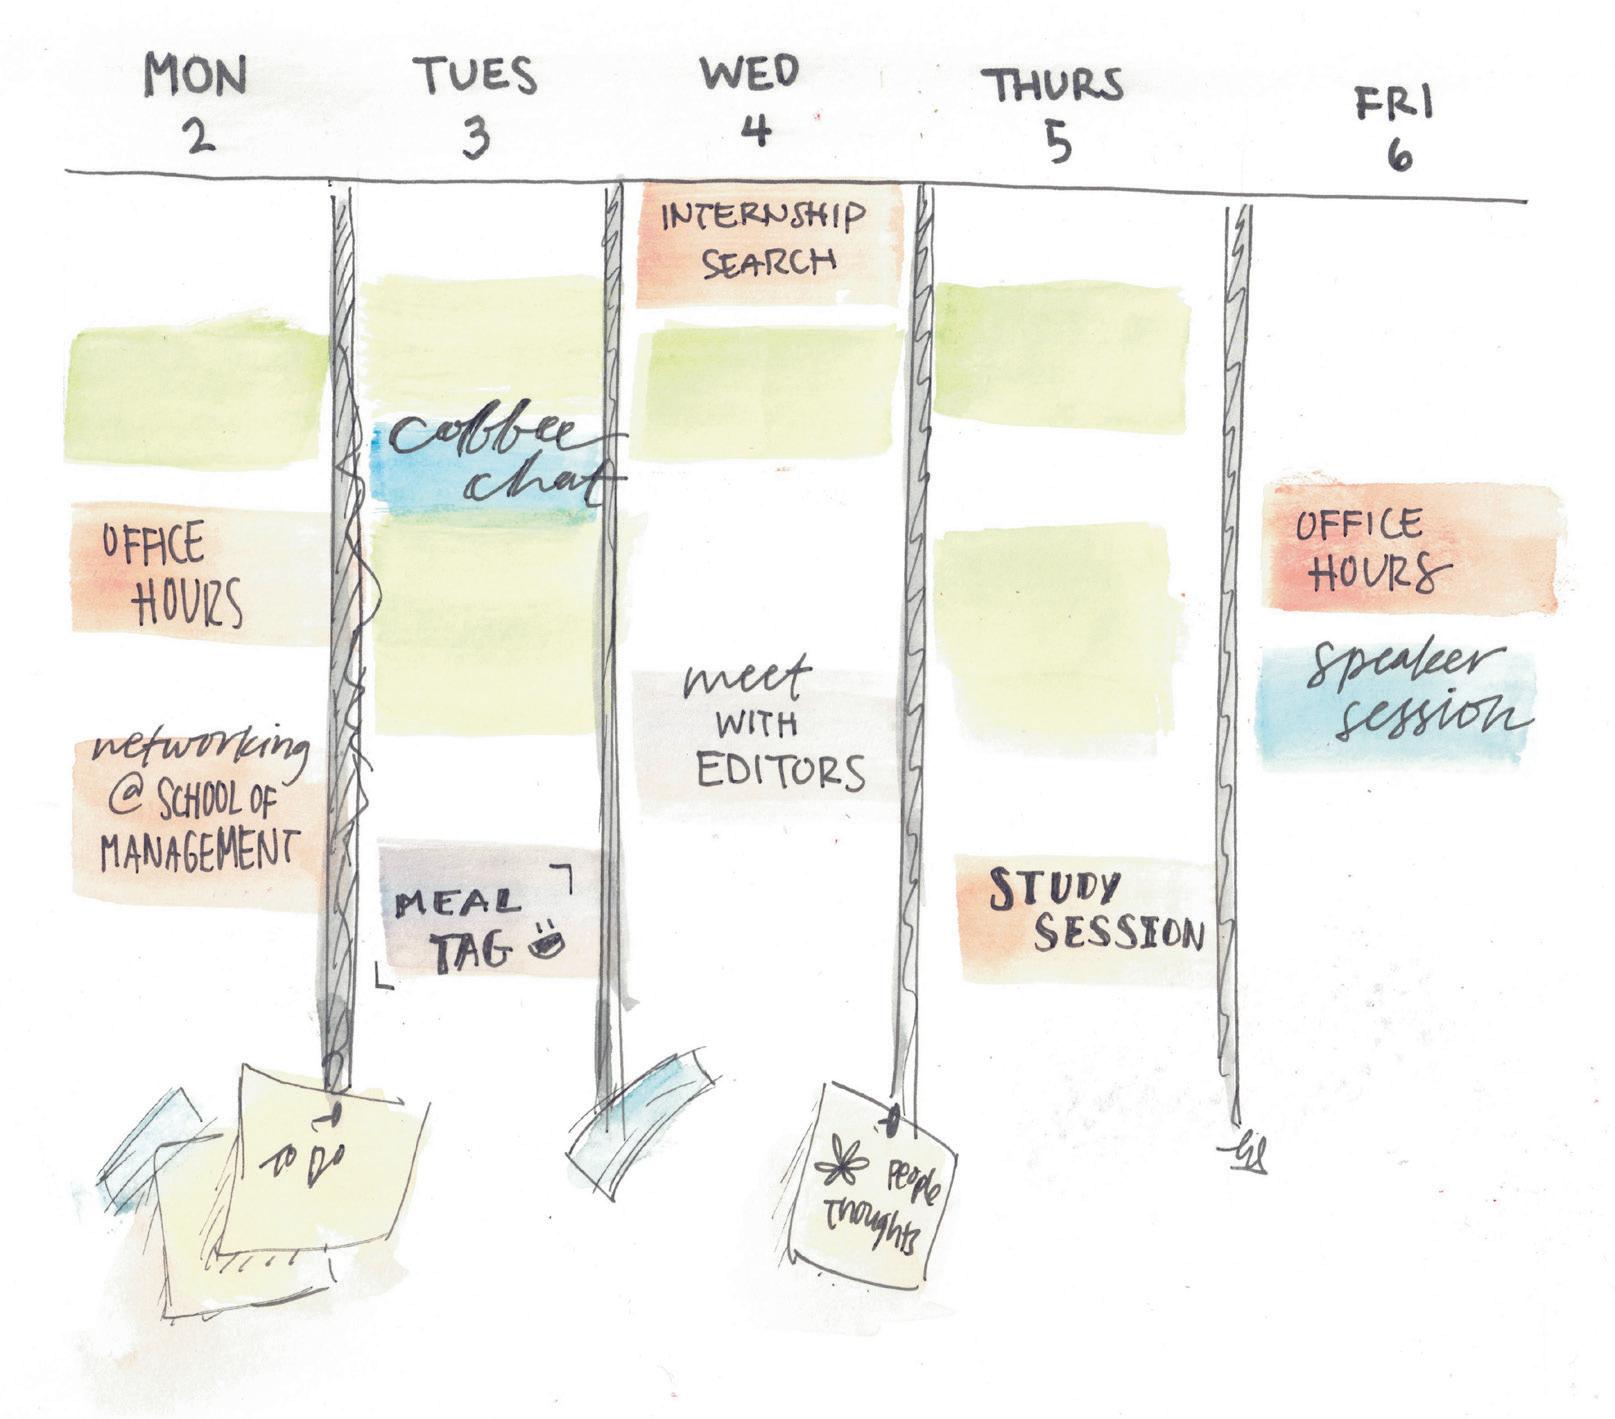 MON
2
TUES
3
WED
4
THURS
5
FRI
6
OFFICE
HOURS
networking
@ SCHOOL OF
MANAGEMENT
coffee
chat
MEAL
TAG
INTERNSHIP
SEARCH
meet
WITH
EDITORS
STUDY
SESSION
OFFICE
HOURS
speaker
session
TO DO
PEOPLE
THOUGHTS